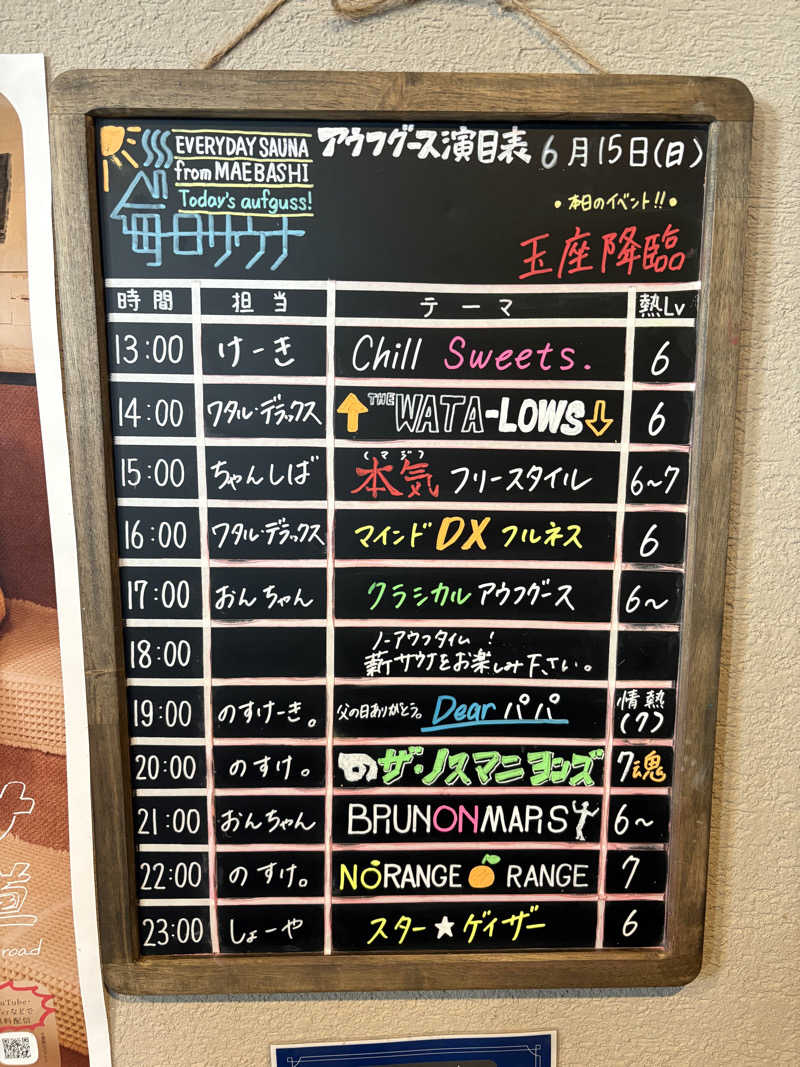 EVERYDAY SAUNA
from MAEBASHI
Today's aufguss!
毎日サウナ
アウフグース演目表 6月15日(日)
・本日のイベント!!・
玉座降臨
時間 担当 テーマ 熱Lv
13:00 けーき Chill Sweets. 6
14:00 ワタル・デラックス ↑THE WATA-LOWS↓ 6
15:00 ちゃんしば 本気(マジ) フリースタイル 6~7
16:00 ワタル・デラックス マインドDXフルネス 6
17:00 おんちゃん クラシカルアウフグース 6~
18:00 ノーアウフタイム!
薪サウナをお楽しみ下さい。
19:00 のすけーき。 父の日ありがとう。Dearパパ 情熱
(7)
20:00 のすけ。 の ザ・ノスマニヨンズ 7魂
21:00 おんちゃん BRUNONMARS 6~
22:00 のすけ。 NORANGE RANGE 7
23:00 しょーや スター★ゲイザー 6
道
road
YouTube・
などで
無料配信